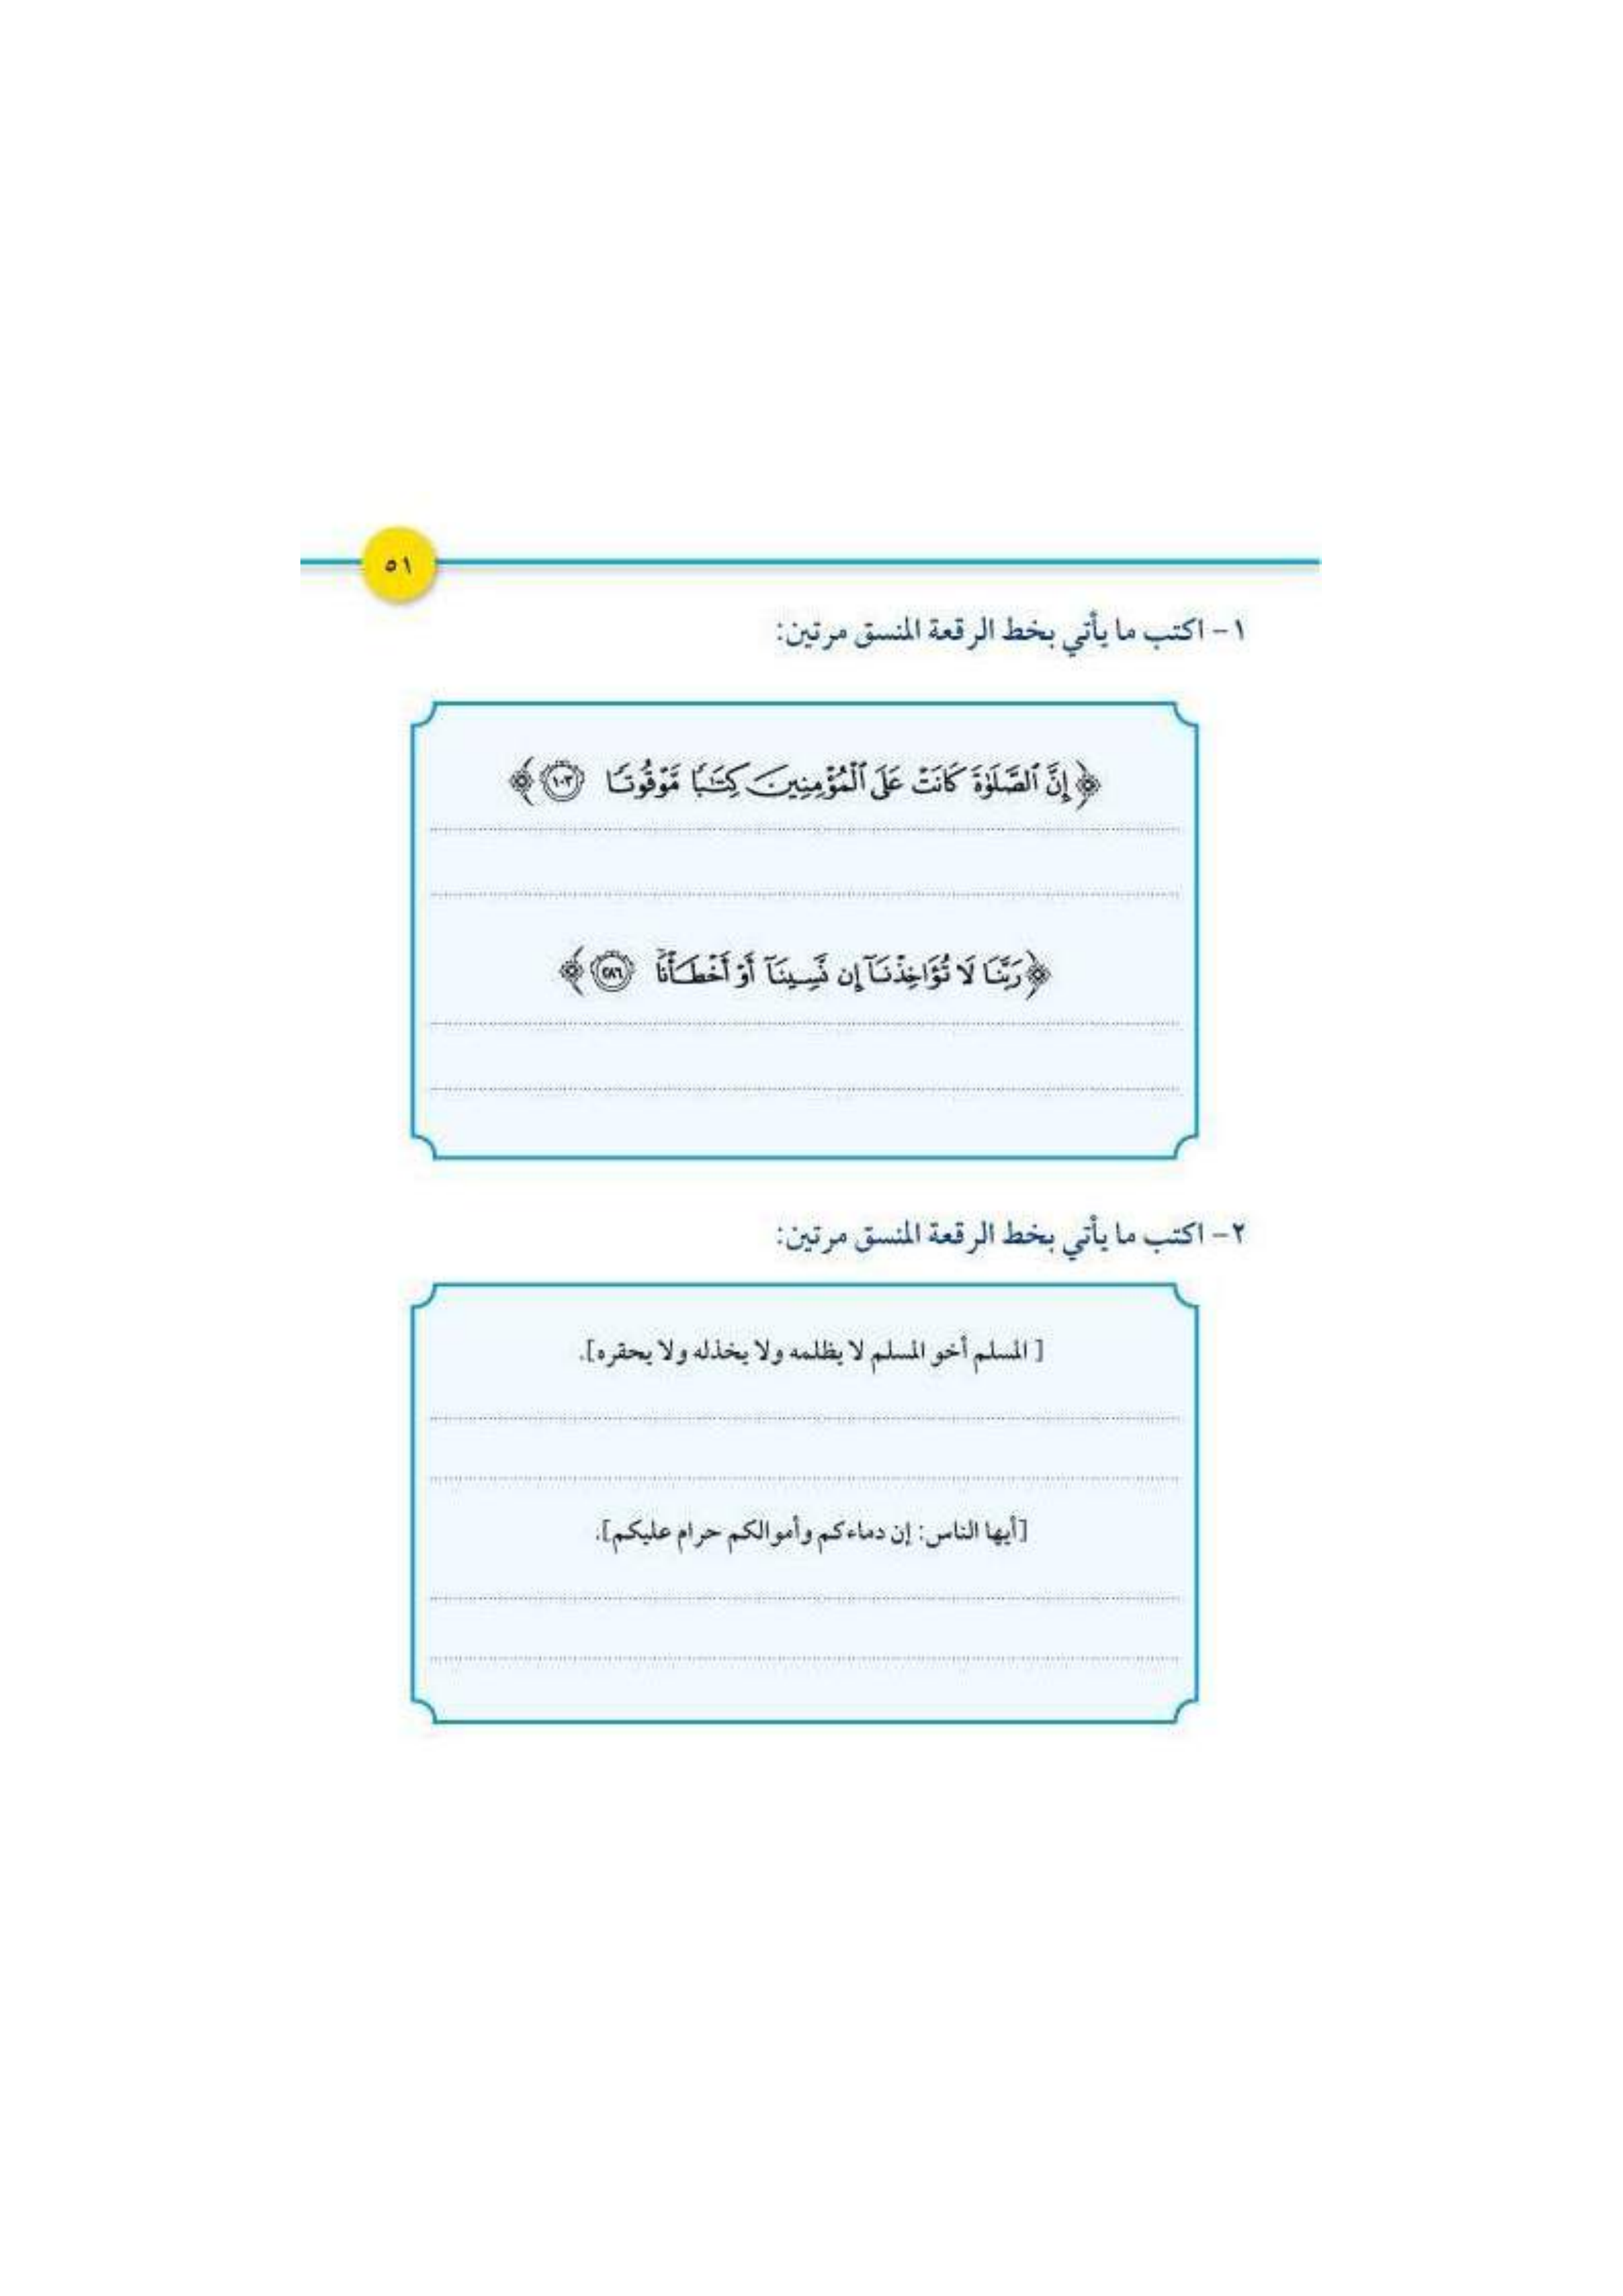 ٥١
١- اكتب ما يأتي بخط الرقعة المنسق مرتين:
﴿إِنَّ ٱلصَّلَوٰةَ كَانَتْ عَلَى ٱلْمُؤْمِنِينَ كِتَـٰبًا مَّوْقُوتًا ١٠٣﴾
﴿رَبَّنَا لَا تُؤَاخِذْنَآ إِن نَّسِينَآ أَوْ أَخْطَأْنَا ٢٨٦﴾
٢- اكتب ما يأتي بخط الرقعة المنسق مرتين:
[ المسلم أخو المسلم لا يظلمه ولا يخذله ولا يحقره].
[أيها الناس: إن دماءكم وأموالكم حرام عليكم].